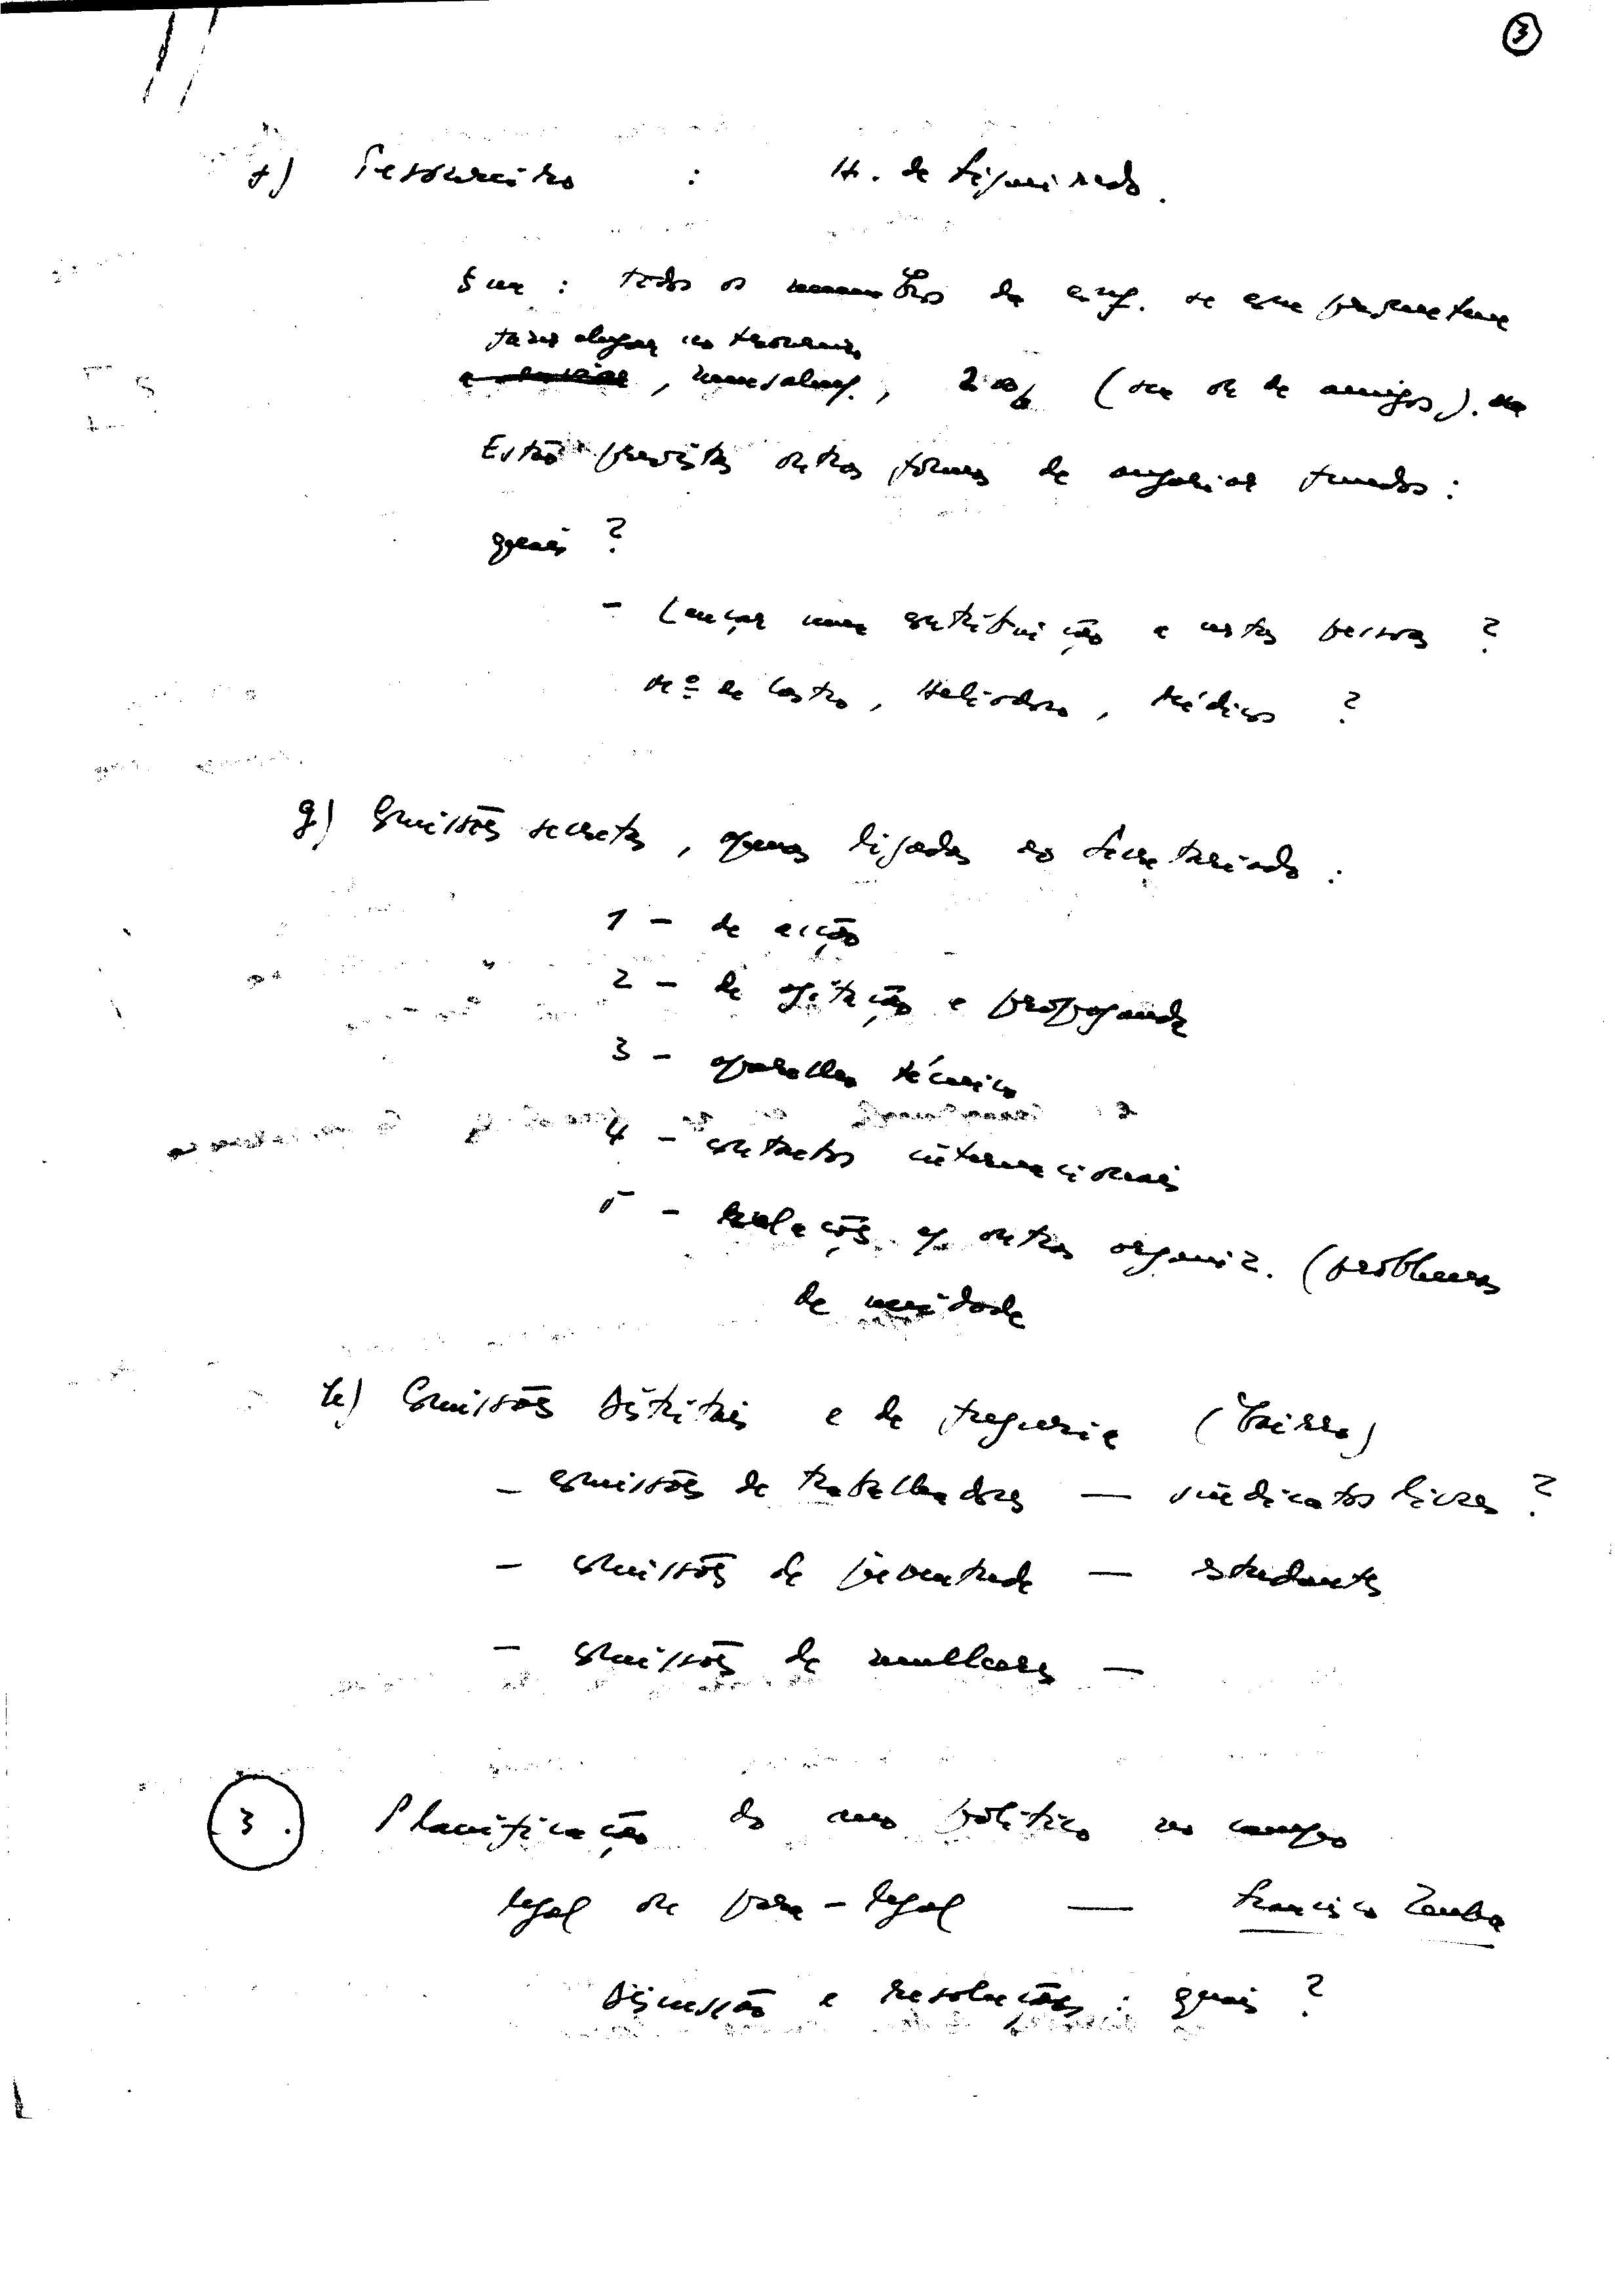 3
f) Tesoureiro : H. de Figueiredo.
§ un : todos os membros da se comprometem
fazer chegar ao tesoureiro
, mensalm., (seu ou de amigos).
Estão previstas outras formas de angariar fundos :
quais ?
- Lançar uma contribuição a certas pessoas ?
de Castro, Heliodoro, Médicos ?
g) Comissões secretas, apenas ligadas ao Secretariado :
1 - de acção
2 - de agitação e propaganda
3 - aparelho técnico
4 - contactos internacionais
5 - relações c/ outras organiz. (problemas
de unidade
h) Comissões distritais e de freguesia (bairro)
- comissões de trabalhadores — sindicatos livres ?
- comissões de juventude — estudantes
- comissões de mulheres —
3. Planificação do ano político no campo
legal ou para-legal — Francisco Zenha
Discussão e resoluções : quais ?